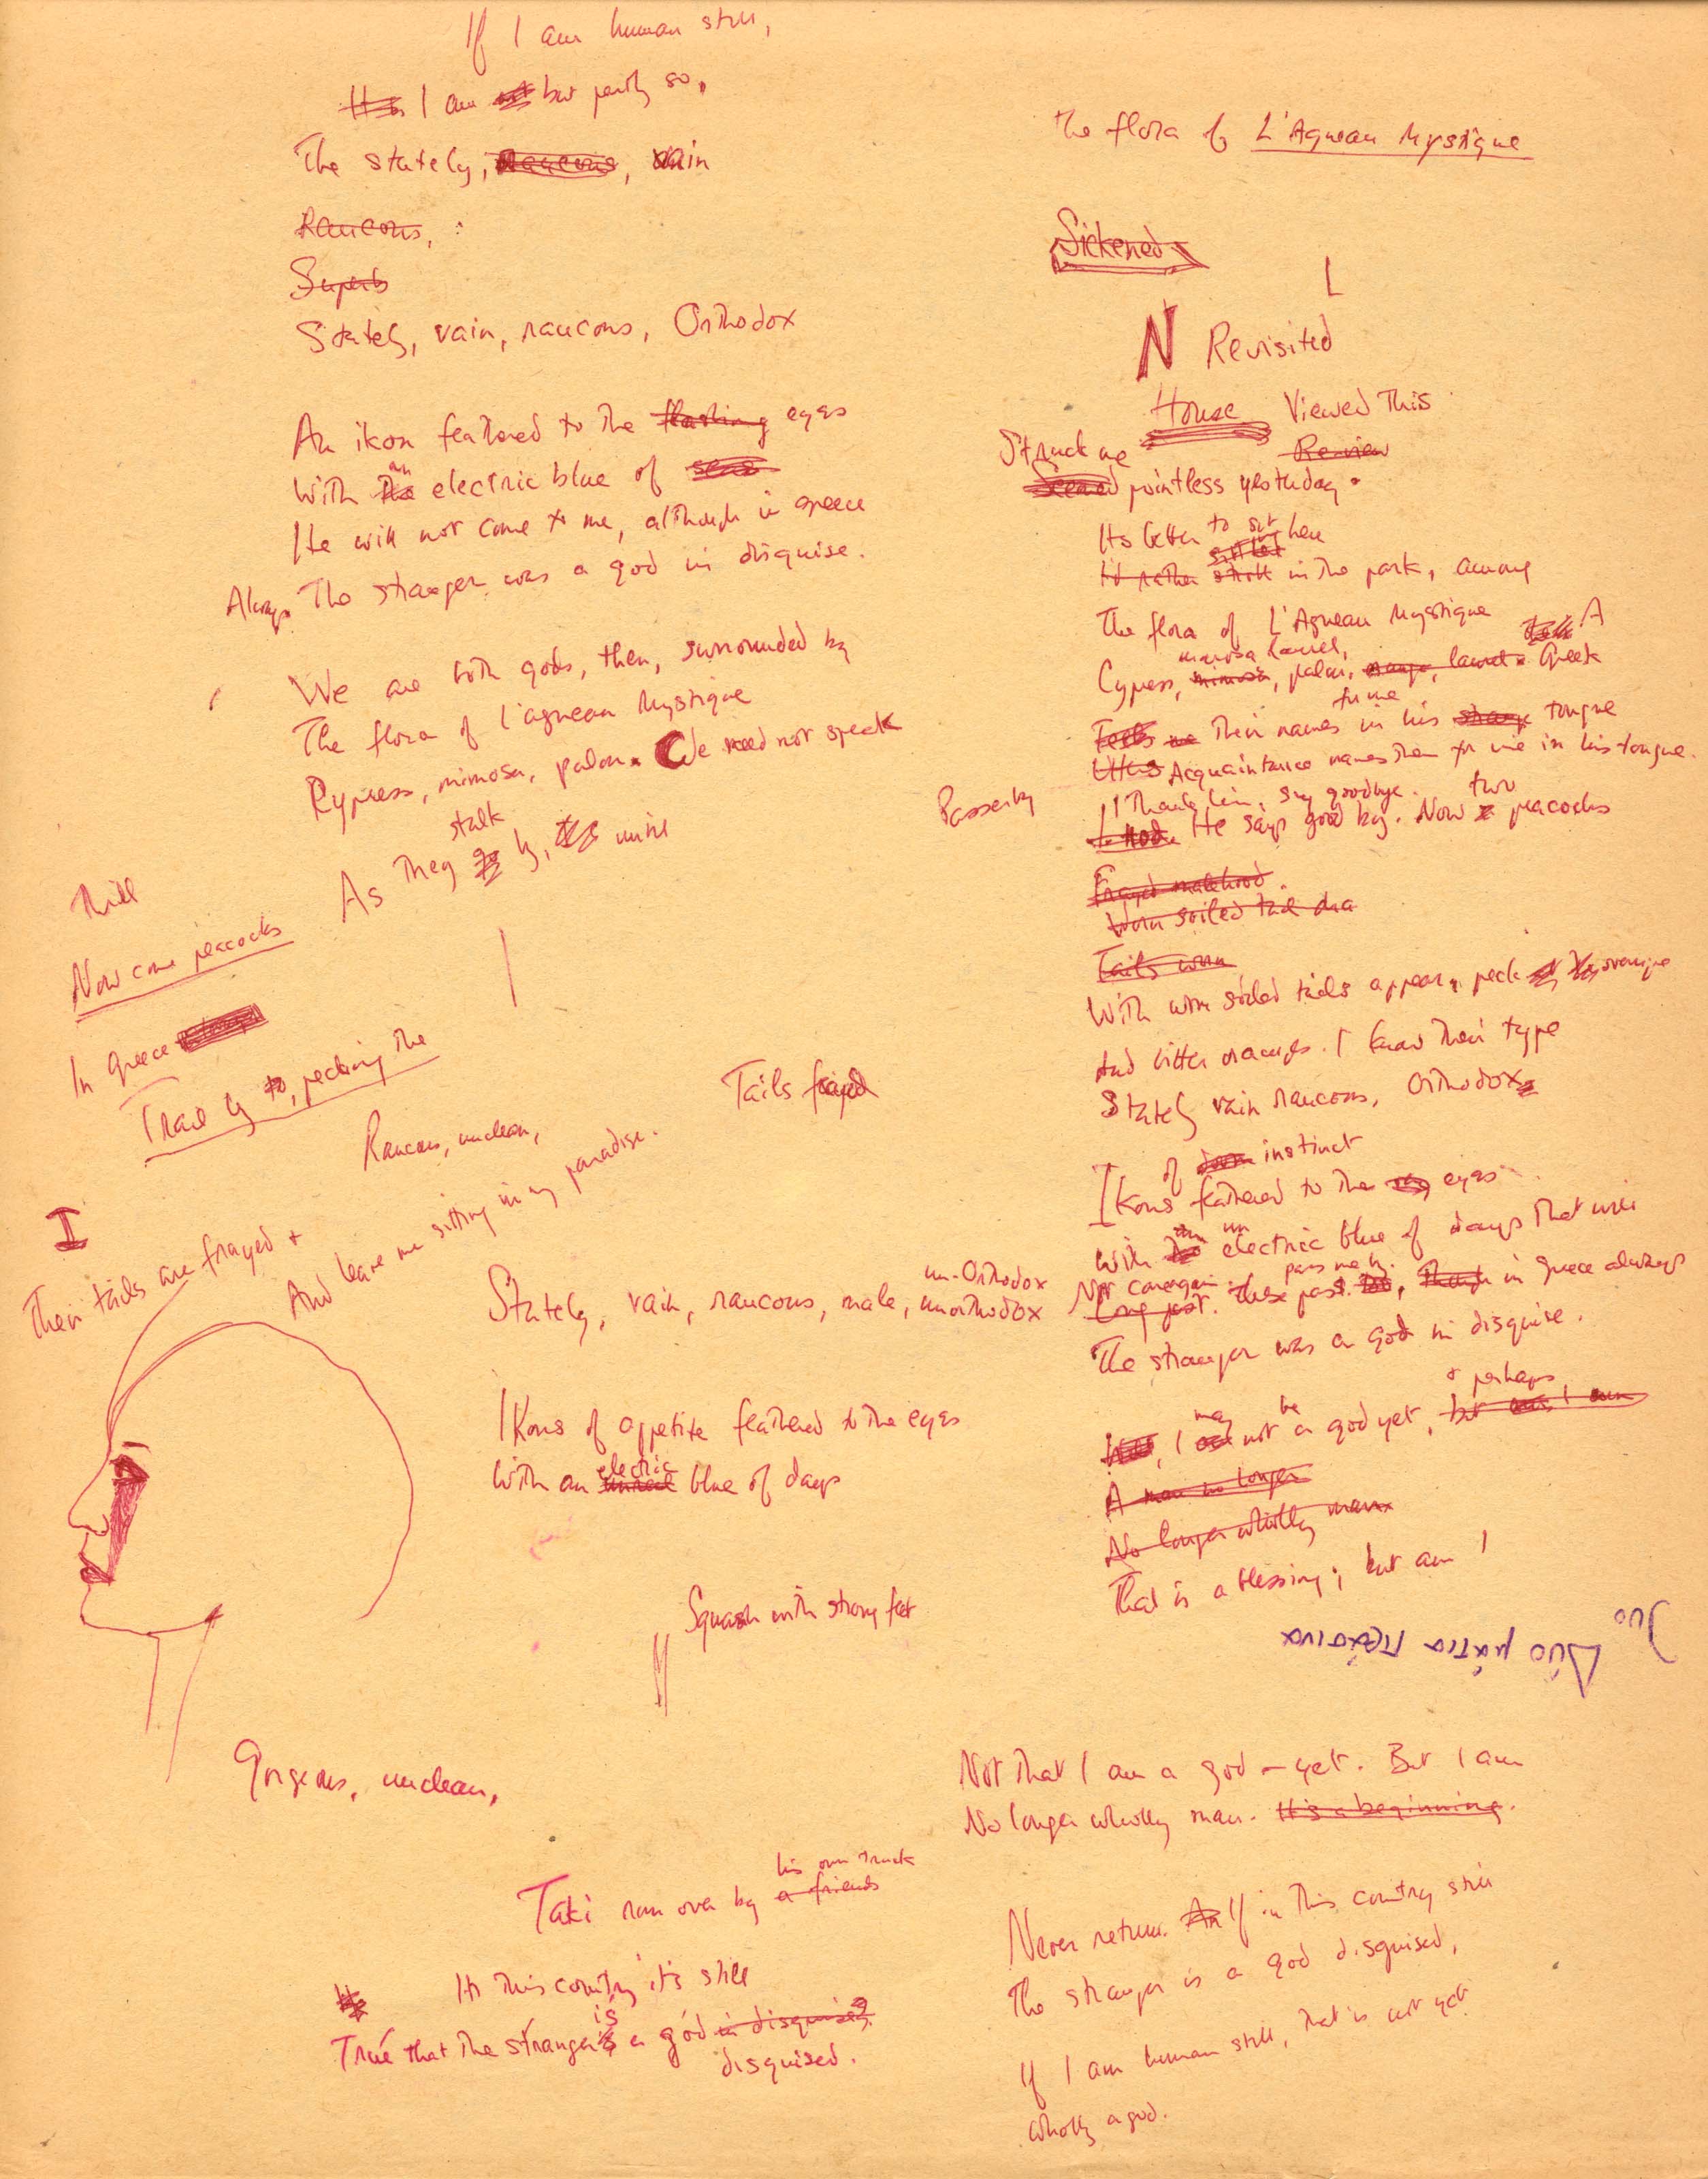 If I am human still,
I am but partly so,
The stately, raucous, vain
Raucous, :
Superb
Stately, vain, raucous, Orthodox
An ikon feathered to the flashing eyes
With the an electric blue of seas
He will not come to me, although in Greece
Always The stranger was a god in disguise.
We are both gods, then, surrounded by
The flora of L'agneau Mystique
Cypress, mimosa, palm. We need not speak
As They go stalk by, until
Thill
Now come peacocks
In Greece
Trail by to, pecking the
Raucous, unclean,
Tails frayed
I
Their tails are frayed +
And leave me sitting in my paradise.
Stately, vain, raucous, male, unorthodox un-Orthodox
Ikons of appetite feathered to the eyes
With an unreal electric blue of days
Squawk with strong feet
Gorgeous, unclean,
Taki run over by a friends his own truck
In This country it's still
True that the stranger is a god in disguise
disguised.
The flora of L'Agneau Mystique
Sickened
L
N Revisited
House Viewed This
Review
Struck me
Seemed pointless yesterday.
Its better to sit here
I'd rather stroll in the park, among
The flora of L'Agneau Mystique
Cypress, mimosa, mimosa laurel, palm, orange, laurel. Talk A Greek
Tells me Their names to me in his strange tongue
Utters Acquaintance names them for me in his tongue.
Passerby
I Thank him, say goodbye.
I nod. He says good bye. Now two peacocks
Frayed malehood
Worn soiled tail
Tails worn
With worn soiled tails appear, peck orange
And bitter oranges. I know Their type
Stately vain raucous, Orthodox
Ikons of instinct feathered to the eyes
With an electric blue of days That will
Not come again. pass me by.
Long past. These past. Though in Greece always
The stranger was a god in disguise.
Well, I am may not be a god yet, + perhaps but I am
A man no longer
No longer wholly man
That is a blessing; but am I
Δύο
Δύο μάτια γαλάζια
Not That I am a god – yet. But I am
No longer wholly man. It's a beginning.
Never return. If in This country still
The stranger is a god disguised,
If I am human still, That is not yet
Wholly a god.